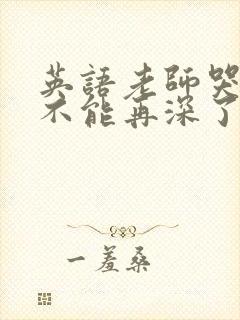 英語老師哭
不能再深了
一羞桑